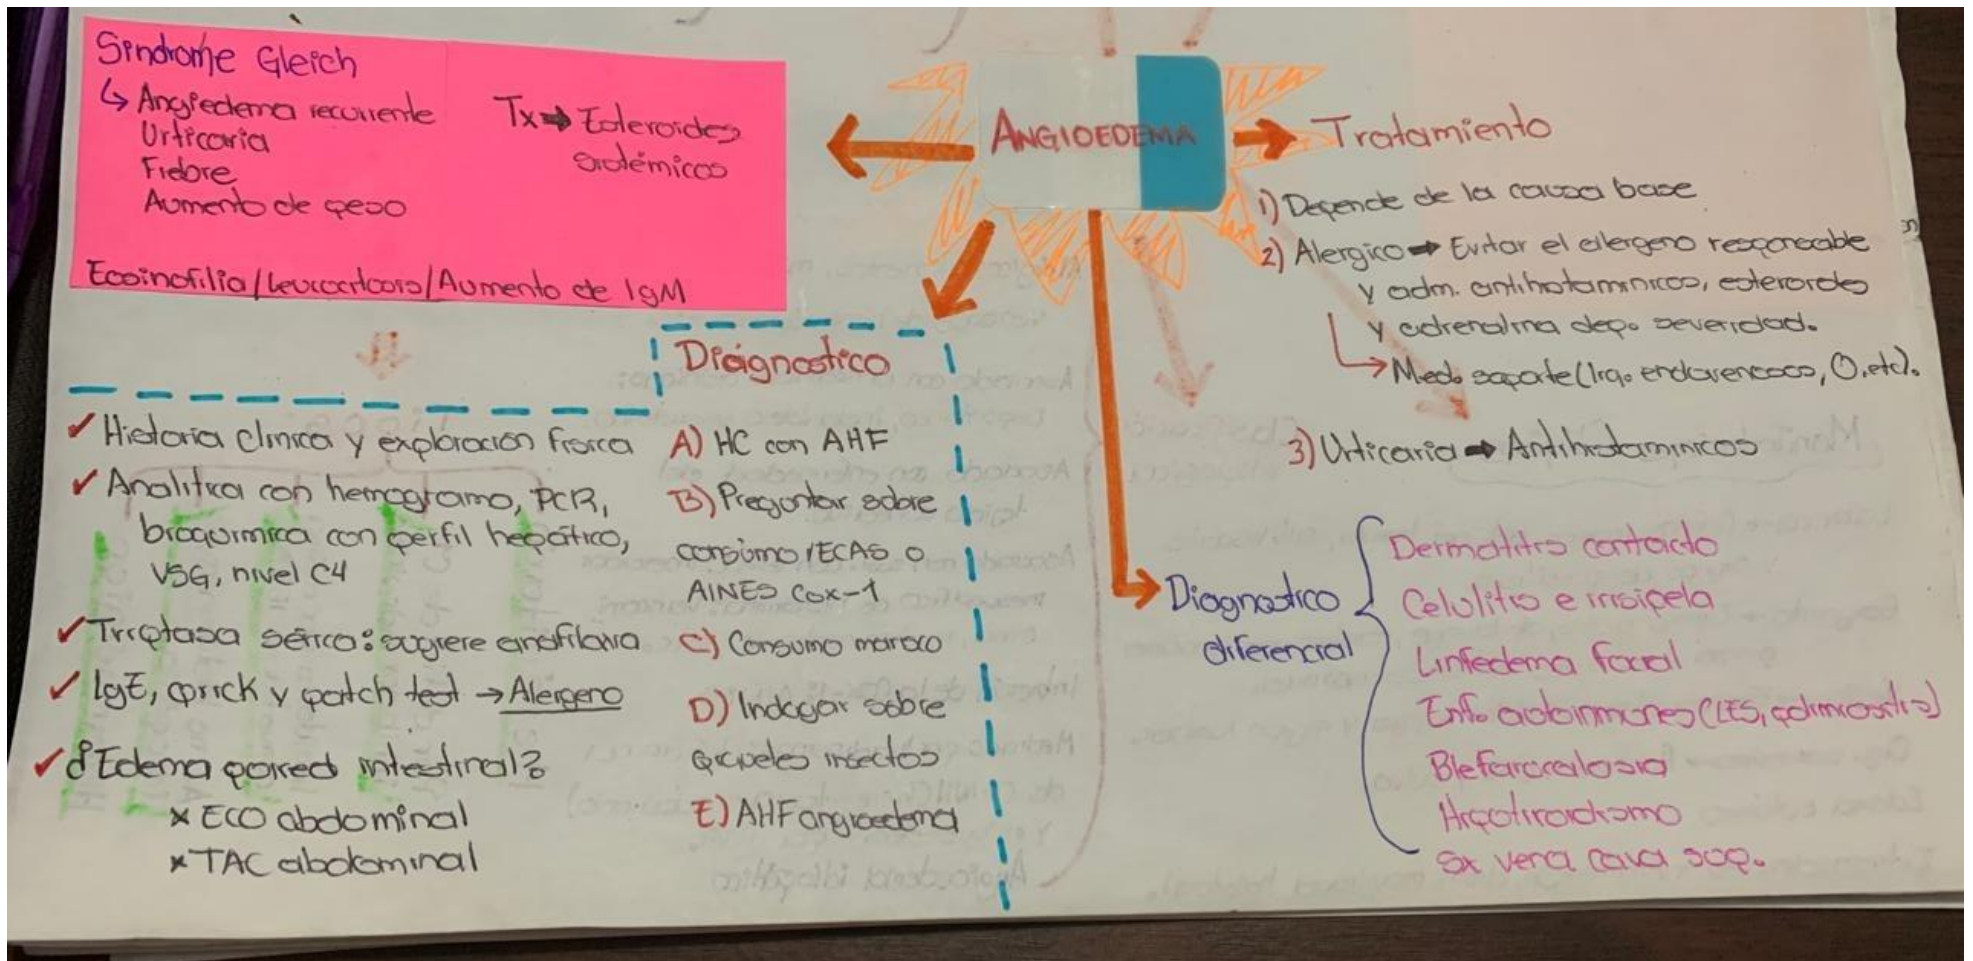 Sindrome Gleich
↳ Angiedema recurrente
Urticaria
Fiebre
Aumento de peso
Tx → Esteroides
sistémicos
Eosinofilia/Leucocitosis/Aumento de IgM
ANGIOEDEMA
Tratamiento
1) Depende de la causa base
2) Alergico → Evitar el alergeno responsable
y adm. antihistaminicos, esteroides
y adrenalina dep. severidad.
↳ Med. soporte (liq. endovenosos, O, etc).
3) Urticaria → Antihistaminicos
Diagnostico
✓ Historia clinica y exploracion fisica
✓ Analitica con hemograma, PCR,
bioquimica con perfil hepático,
VSG, nivel C4
✓ Triptasa sérica: sugiere anafilaxia
✓ IgE, prick y patch test → Alergeno
✓ ¿Edema pared intestinal?
× ECO abdominal
× TAC abdominal
A) HC con AHF
B) Preguntar sobre
consumo IECAS o
AINES Cox-1
C) Consumo marisco
D) Indagar sobre
piquetes insectos
E) AHF angioedema
Diagnostico
diferencial
Dermatitis contacto
Celulitis e irisipela
Linfedema facial
Enf. autoinmunes (LES, polimiositis)
Blefarocalasia
Hipotiroidismo
Sx vena cava sup.